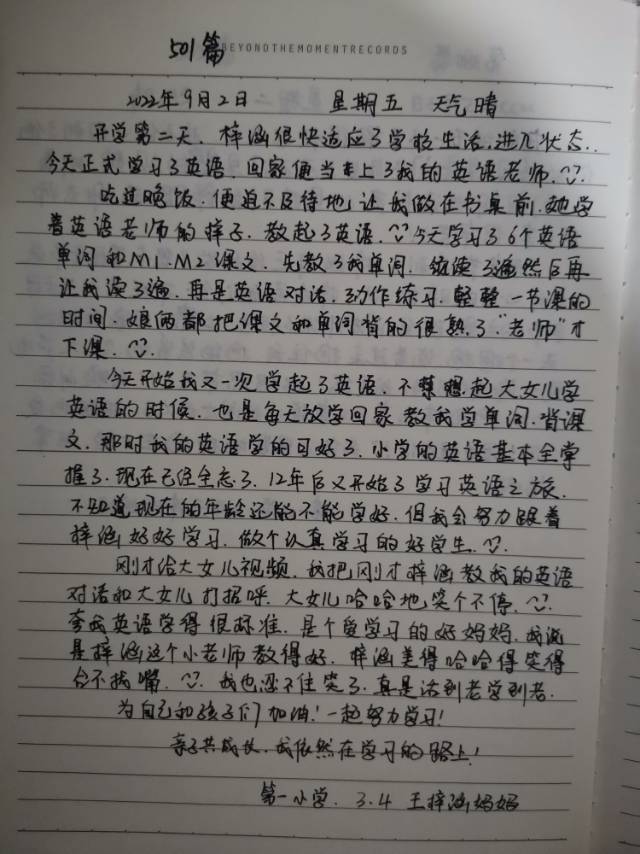 501篇 BEYONDTHEMOMENTRECORDS
2022年9月2日 星期五 天气晴
开学第二天.梓涵很快适应了学校生活.进入状态.
今天正式学习了英语.回家便当上了我的英语老师.
吃过晚饭.便迫不及待地让我做在书桌前.她学
着英语老师的样子.教起了英语.今天学习了6个英语
单词和M1.M2课文.先教了我单词.领读3遍然后再
让我读3遍.再是英语对话.动作练习.整整一节课的
时间.娘俩都把课文和单词背的很熟了"老师"才
下课.
今天开始我又一次学起了英语.不禁想起大女儿学
英语的时候.也是每天放学回家教我学单词.背课
文.那时我的英语学的可好了.小学的英语基本全掌
握了.现在已经全忘了.12年后又开始了学习英语之旅.
不知道现在的年龄还能不能学好.但我会努力跟着
梓涵好好学习.做个认真学习的好学生.
刚才给大女儿视频.我把刚才梓涵教我的英语
对话和大女儿打招呼.大女儿哈哈地笑个不停.
夸我英语学得很标准.是个爱学习的好妈妈.我说
是梓涵这个小老师教得好.梓涵美得哈哈得笑得
合不拢嘴.我也忍不住笑了.真是活到老学到老.
为自己和孩子们加油!一起努力学习!
亲子共成长.我依然在学习的路上!
第一小学.3.4 王梓涵妈妈